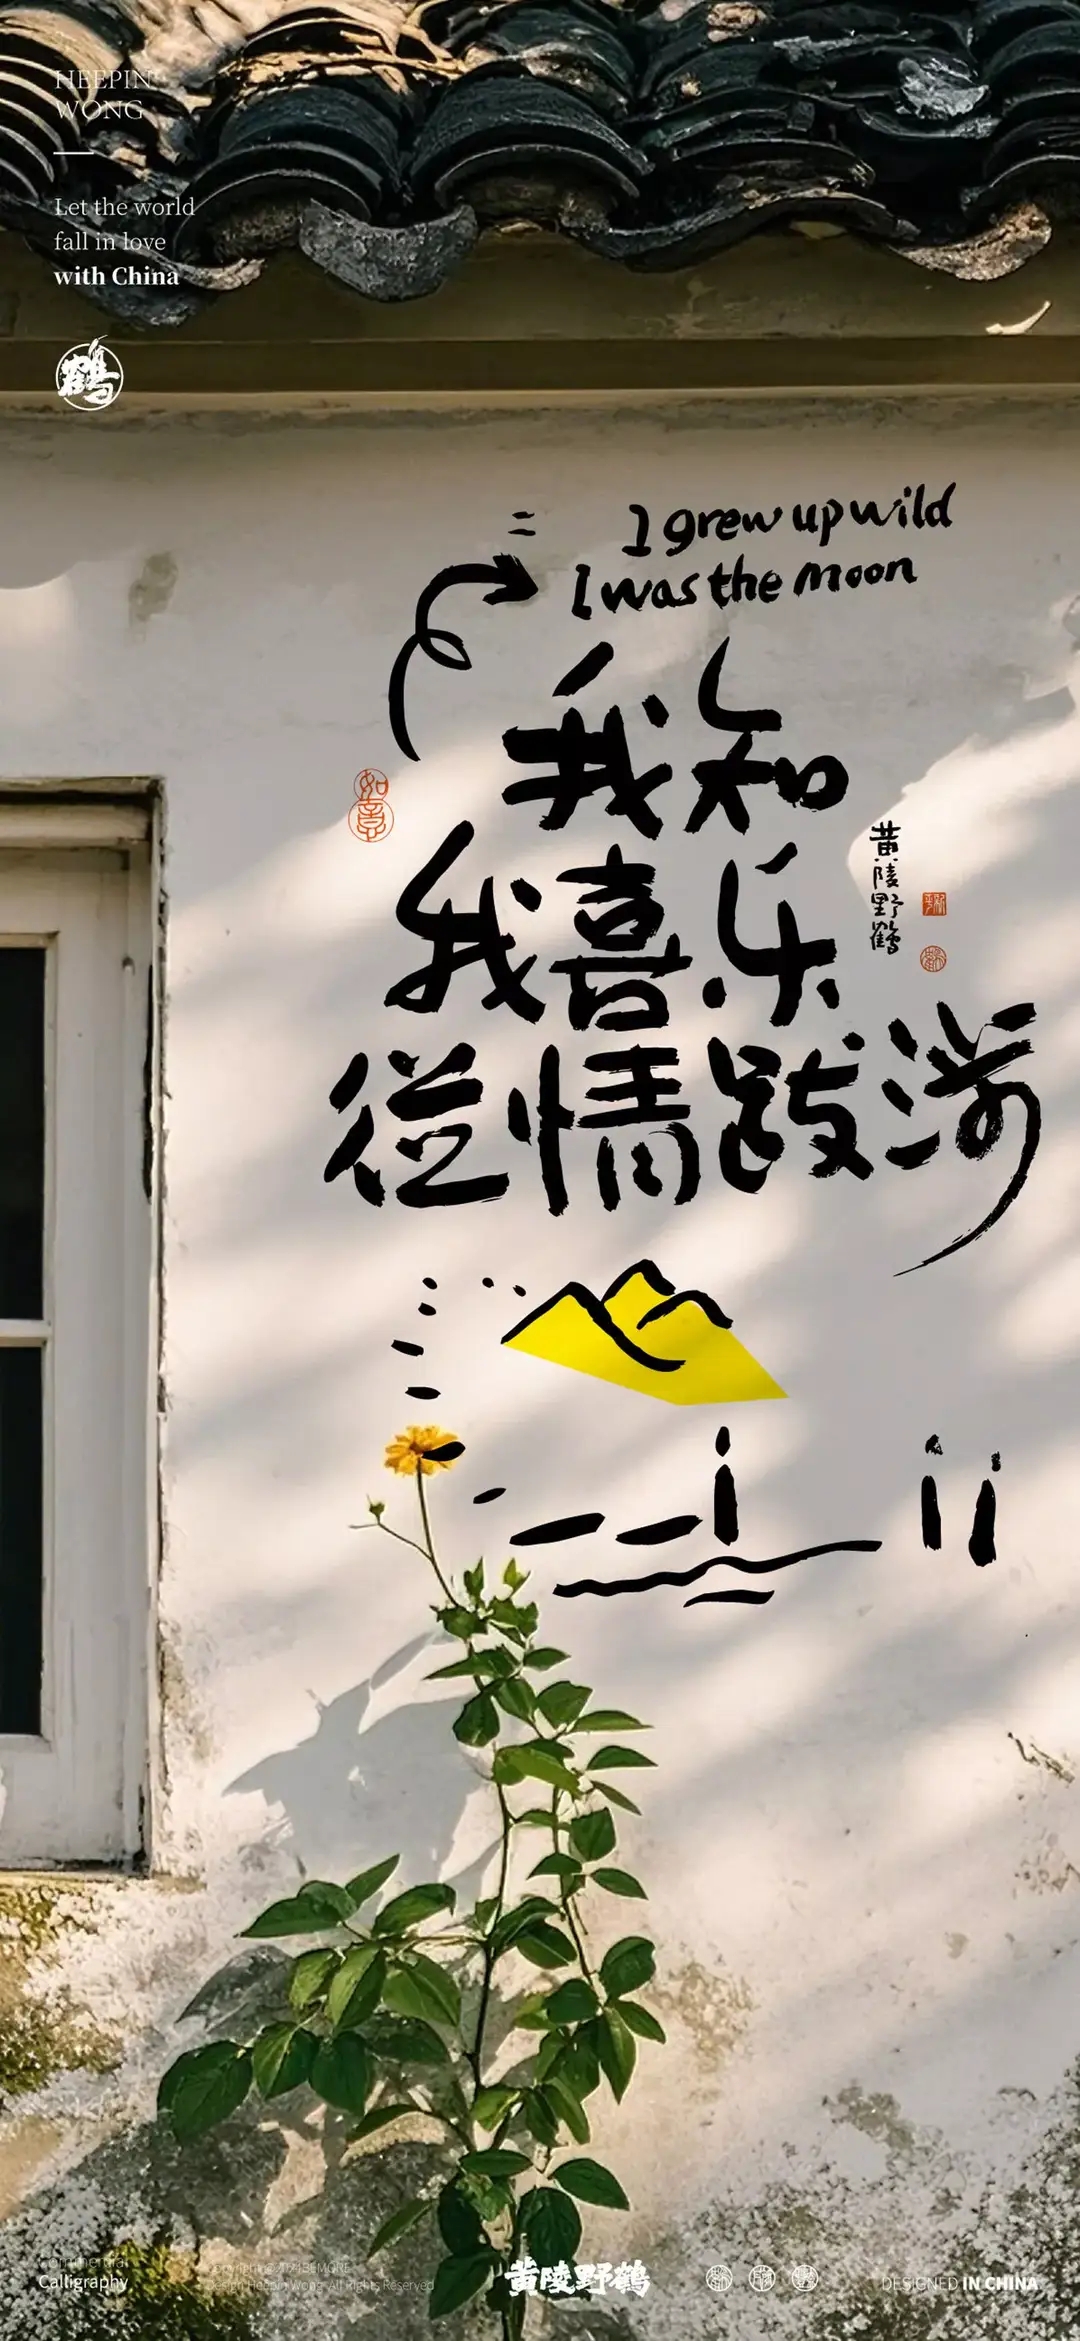 HEEPIN
WONG
Let the world
fall in love
with China
鹤
I grew up wild
I was the moon
我知
我喜乐
从情跋涉
如意
黄陵野鹤
Commercial
Calligraphy
Design Heepin Wong All Rights Reserved
黄陵野鹤
DESIGNED IN CHINA